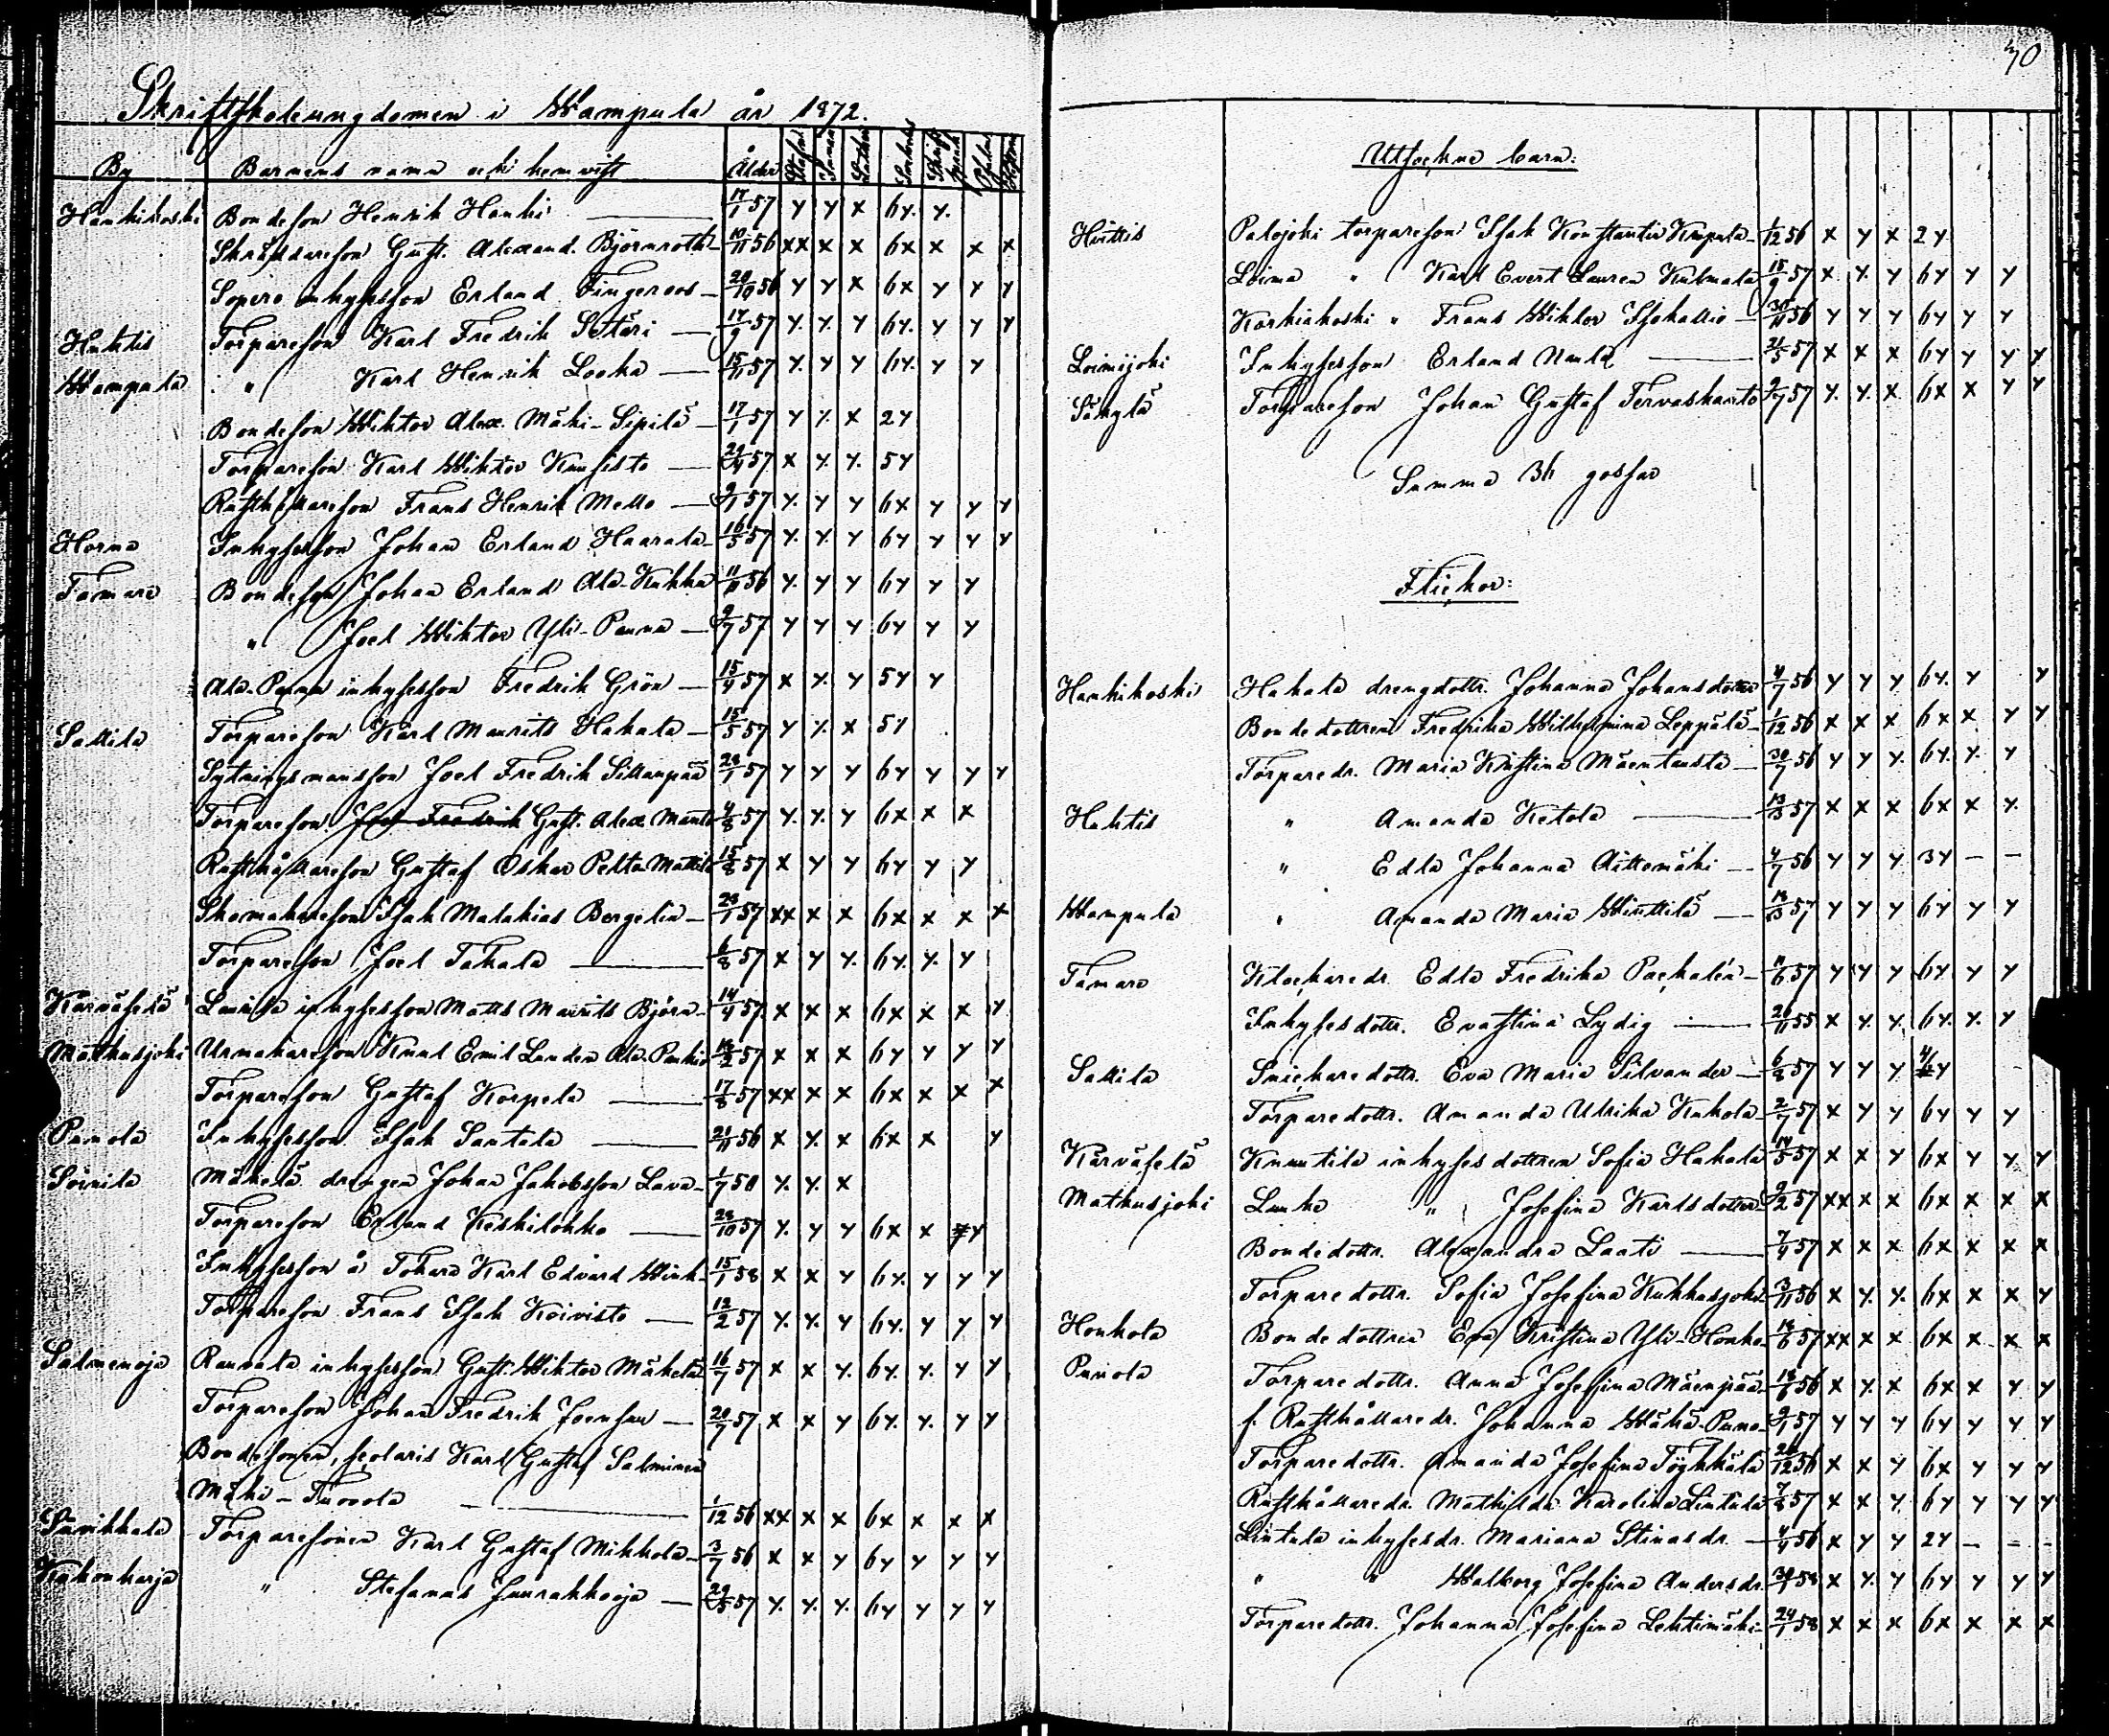 Skriftskoleungdomen i Wampula år 1872.
By Barnens namn och hemvist Ålder Stafn. Innan Luthers Svebelii Skrift språk Psalm
Hankikoski Bondeson Henrik Hanki — 17/1 57 y y x 6y. y.
Skräddareson Gust. Alexand. Björnroth 10/11 56 xx x x 6x x x x
Sopero inhyseson Erland Fingeroos — 20/9 56 y y x 6x y y y
Huhtis Torpareson Karl Fredrik Settäri — 17/9 57 y. y. y 6y. y y y
Wampula " Karl Henrik Looha — 15/11 57 y. y y 6y. y y
Bondeson Wiktor Alex. Mäki-Sipilä — 17/1 57 y y. x 2y
Torpareson Karl Wiktor Kuusisto — 29/4 57 x y. y. 5y
Rusthållareson Frans Henrik Mello — 9/1 57 y. y y 6x y y y
Horna Inhyseson Johan Erland Haarala — 16/5 57 y. y. y 6y y y y
Tamare Bondeson Johan Erland Ala-Kukka 11/11 56 y. y y 6y y y
" Joel Wiktor Yli-Panna — 9/7 57 y y y 6y y y
Ala-Panna inhyseson Fredrik Grön — 15/4 57 x y. y 5y y
Sallila Torpareson Karl Maurits Hakala — 15/5 57 y y. x 5y
Sytningsmansson Joel Fredrik Sillanpää 28/1 57 y y y 6y y y y
Torpareson Joel Fredrik Gust. Alex. Manto 4/8 57 y. y. y 6x x x
Rusthållareson Gustaf Oskar Pelto-Mattila 15/8 57 x y y 6y y y
Skomakareson Isak Malakias Bergelin — 23/1 57 xx x x 6x x x x
Torpareson Joel Takala — 6/8 57 x y y. 6y. y. y
Karvasela Luukila inhyseson Matts Maurits Björn — 14/4 57 x x x 6x x x y
Mathusjoki Urmakareson Knut Emil Lunden Ala-Paukio 12/2 57 x x x 6y y y y
Torpareson Gustaf Korpela — 17/8 57 xx x x 6x x x x
Punola Inhyseson Isak Santala — 21/11 56 x y. x 6x x y
Soinila Mäkelä drengen Johan Jakobsson Lava — 1/7 50 y. y. x
Torpareson Erland Keskilohko — 28/10 57 y. y y 6x x y
Inhyseson å Tokara Karl Edvard Wink — 15/1 58 x x y 6y. y y y
Torpareson Frans Isak Koivisto — 12/2 57 y. y. y 6y. y y y
Salmenoja Rauvala inhyseson Gust. Wiktor Mäkelä 16/7 57 x x y. 6y. y. y y
Torpareson Johan Fredrik Joensuu — 20/7 57 x x y 6y. y. y y
Bondesonen, scolaris Karl Gustaf Salminen
Mäki-Turola — 1/12 56 xx x x 6x x x x
Sarikkala Torparesonen Karl Gustaf Mikkola — 3/7 56 x x y 6y y y y
Kukonharja " Stefanas Juurakkooja — 29/5 57 y. y. y. 6y y y y
70
Utsockne barn:
Huittis Palojoki torpareson Isak Konstantin Krapula — 1/12 56 x y x 2y
Loima " Karl Evert Lauren Kulmala 15/9 57 x y. y 6y y y
Korkiakoski " Frans Wiktor Isokallio — 30/11 56 y y y 6y y y
Loimijoki Inhyseson Erland Nanta — 21/5 57 x x x 6y y y y
Säkylä Torpareson Johan Gustaf Tervaskanto 9/7 57 y. y. x 6x x y y
Summa 36 gossar
Flickor:
Hankikoski Hakala drengdottr. Johanna Johansdotter 4/7 56 y y y. 6y. y y
Bondedottren Fredrika Wilhelmina Leppälä — 1/12 56 x x x 6x x y y
Torparedr. Maria Kristina Mäentausta — 30/7 56 y y y. 6y. y. y
Huhtis " Amanda Ketola — 13/3 57 x x x 6x x y.
" Edla Johanna Aittomäki — 4/7 56 y y y. 3y — —
Wampula " Amanda Maria Wiuttilä — 12/3 57 y y y 6y y y
Tamare Klockaredr. Edla Fredrika Packalén — 11/6 57 y y y 6y y y
Inhysesdottr. Evastina Lydig — 26/11 55 x y. y. 6y. y. y
Sallila Snickaredottr. Eva Maria Silvander — 6/8 57 y y y 4y
Torparedottr. Amanda Ulrika Kukola — 2/7 57 x y y 6y y y
Karvasela Knuutila inhysesdottren Sofia Hakala 14/5 57 x x y 6x y y y
Mathusjoki Lunko " Josefina Karlsdotter 9/2 57 xx x x 6x x x x
Bondedottr. Alexandra Laati — 7/4 57 x x x 6x x x x
Torparedottr. Sofia Josefina Kukkasjoki 3/11 56 x y. y. 6x x x y
Honkola Bondedottren Eva Kristina Yli-Honko — 12/6 57 xx x x 6x x x x
Punola Torparedottr. Anna Josefina Mäenpää — 18/6 56 x y. x 6x x y y
f. Rusthållaredr. Johanna Wähä-Puno — 9/1 57 y y y 6y y y y
Torparedottr. Amanda Josefina Töykkälä 28/12 56 x x y 6x y y y
Rusthållaredr. Mathilda Karolina Lintula 7/8 57 x x y. 6y y y y
Lintula inhysesdr. Mariana Stinasdr. — 4/4 56 x y y 2y — — —
" " Walborg Josefina Andersdr. 30/1 58 x y. y 6y y y y
Torparedottr. Johanna Josefina Lehtimäki — 24/1 58 x x x 6x x x x